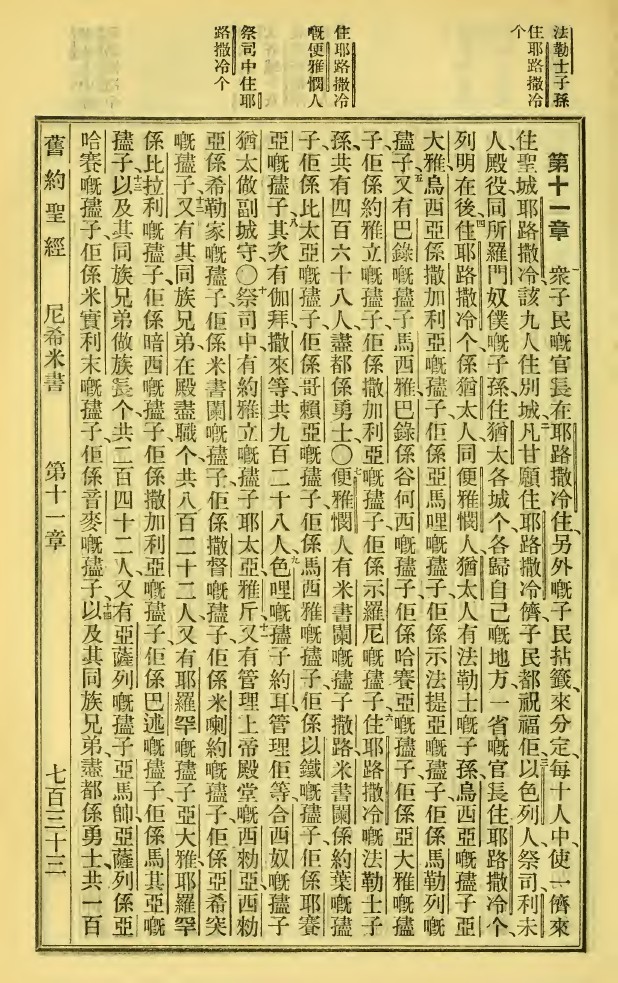 法勒士子孫
住耶路撒冷
个
住耶路撒冷
嘅便雅憫人
祭司中住耶
路撒冷个
第十一章 一衆子民嘅官長在耶路撒冷住、另外嘅子民拈籤來分定、每十人中、使一儕來
住聖城耶路撒冷、該九人住別城、二凡甘願住耶路撒冷儕、子民都祝福佢、三以色列人、祭司、利未
人、殿役、同所羅門奴僕嘅子孫、住猶太各城个、各歸自己嘅地方、一省嘅官長住耶路撒冷个、
列明在後、四住耶路撒冷个、係猶太人同便雅憫人、猶太人有法勒士嘅子孫、烏西亞嘅孻子亞
大雅、烏西亞係撒加利亞嘅孻子、佢係亞馬哩嘅孻子、佢係示法提亞嘅孻子、佢係馬勒列嘅
孻子、五又有巴錄嘅孻子馬西雅、巴錄係谷何西嘅孻子、佢係哈賽亞嘅孻子、佢係亞大雅嘅孻
子、佢係約雅立嘅孻子、佢係撒加利亞嘅孻子、佢係示羅尼嘅孻子、六住耶路撒冷嘅法勒士子
孫、共有四百六十八人、盡都係勇士、〇七便雅憫人有米書闌嘅孻子撒路、米書闌係約葉嘅孻
子、佢係比太亞嘅孻子、佢係哥賴亞嘅孻子、佢係馬西雅嘅孻子、佢係以鐵嘅孻子、佢係耶賽
亞嘅孻子、八其次有伽拜、撒來等、共九百二十八人、九色哩嘅孻子約耳管理佢等、合西奴嘅孻子
猶太做副城守、〇十祭司中有約雅立嘅孻子耶太亞、雅斤、十一又有管理上帝殿堂嘅西勑亞、西勑
亞係希勒家嘅孻子、佢係米書闌嘅孻子、佢係撒督嘅孻子、佢係米喇約嘅孻子、佢係亞希突
嘅孻子、十二又有其同族兄弟、在殿盡職个、共八百二十二人、又有耶羅罕嘅孻子亞大雅、耶羅罕
係比拉利嘅孻子、佢係暗西嘅孻子、佢係撒加利亞嘅孻子、佢係巴述嘅孻子、佢係馬其亞嘅
孻子、十三以及其同族兄弟、做族長个、共二百四十二人、又有亞薩列嘅孻子亞馬帥、亞薩列係亞
哈賽嘅孻子、佢係米實利末嘅孻子、佢係音麥嘅孻子、十四以及其同族兄弟、盡都係勇士、共一百
舊約聖經 尼希米書 第十一章 七百三十三